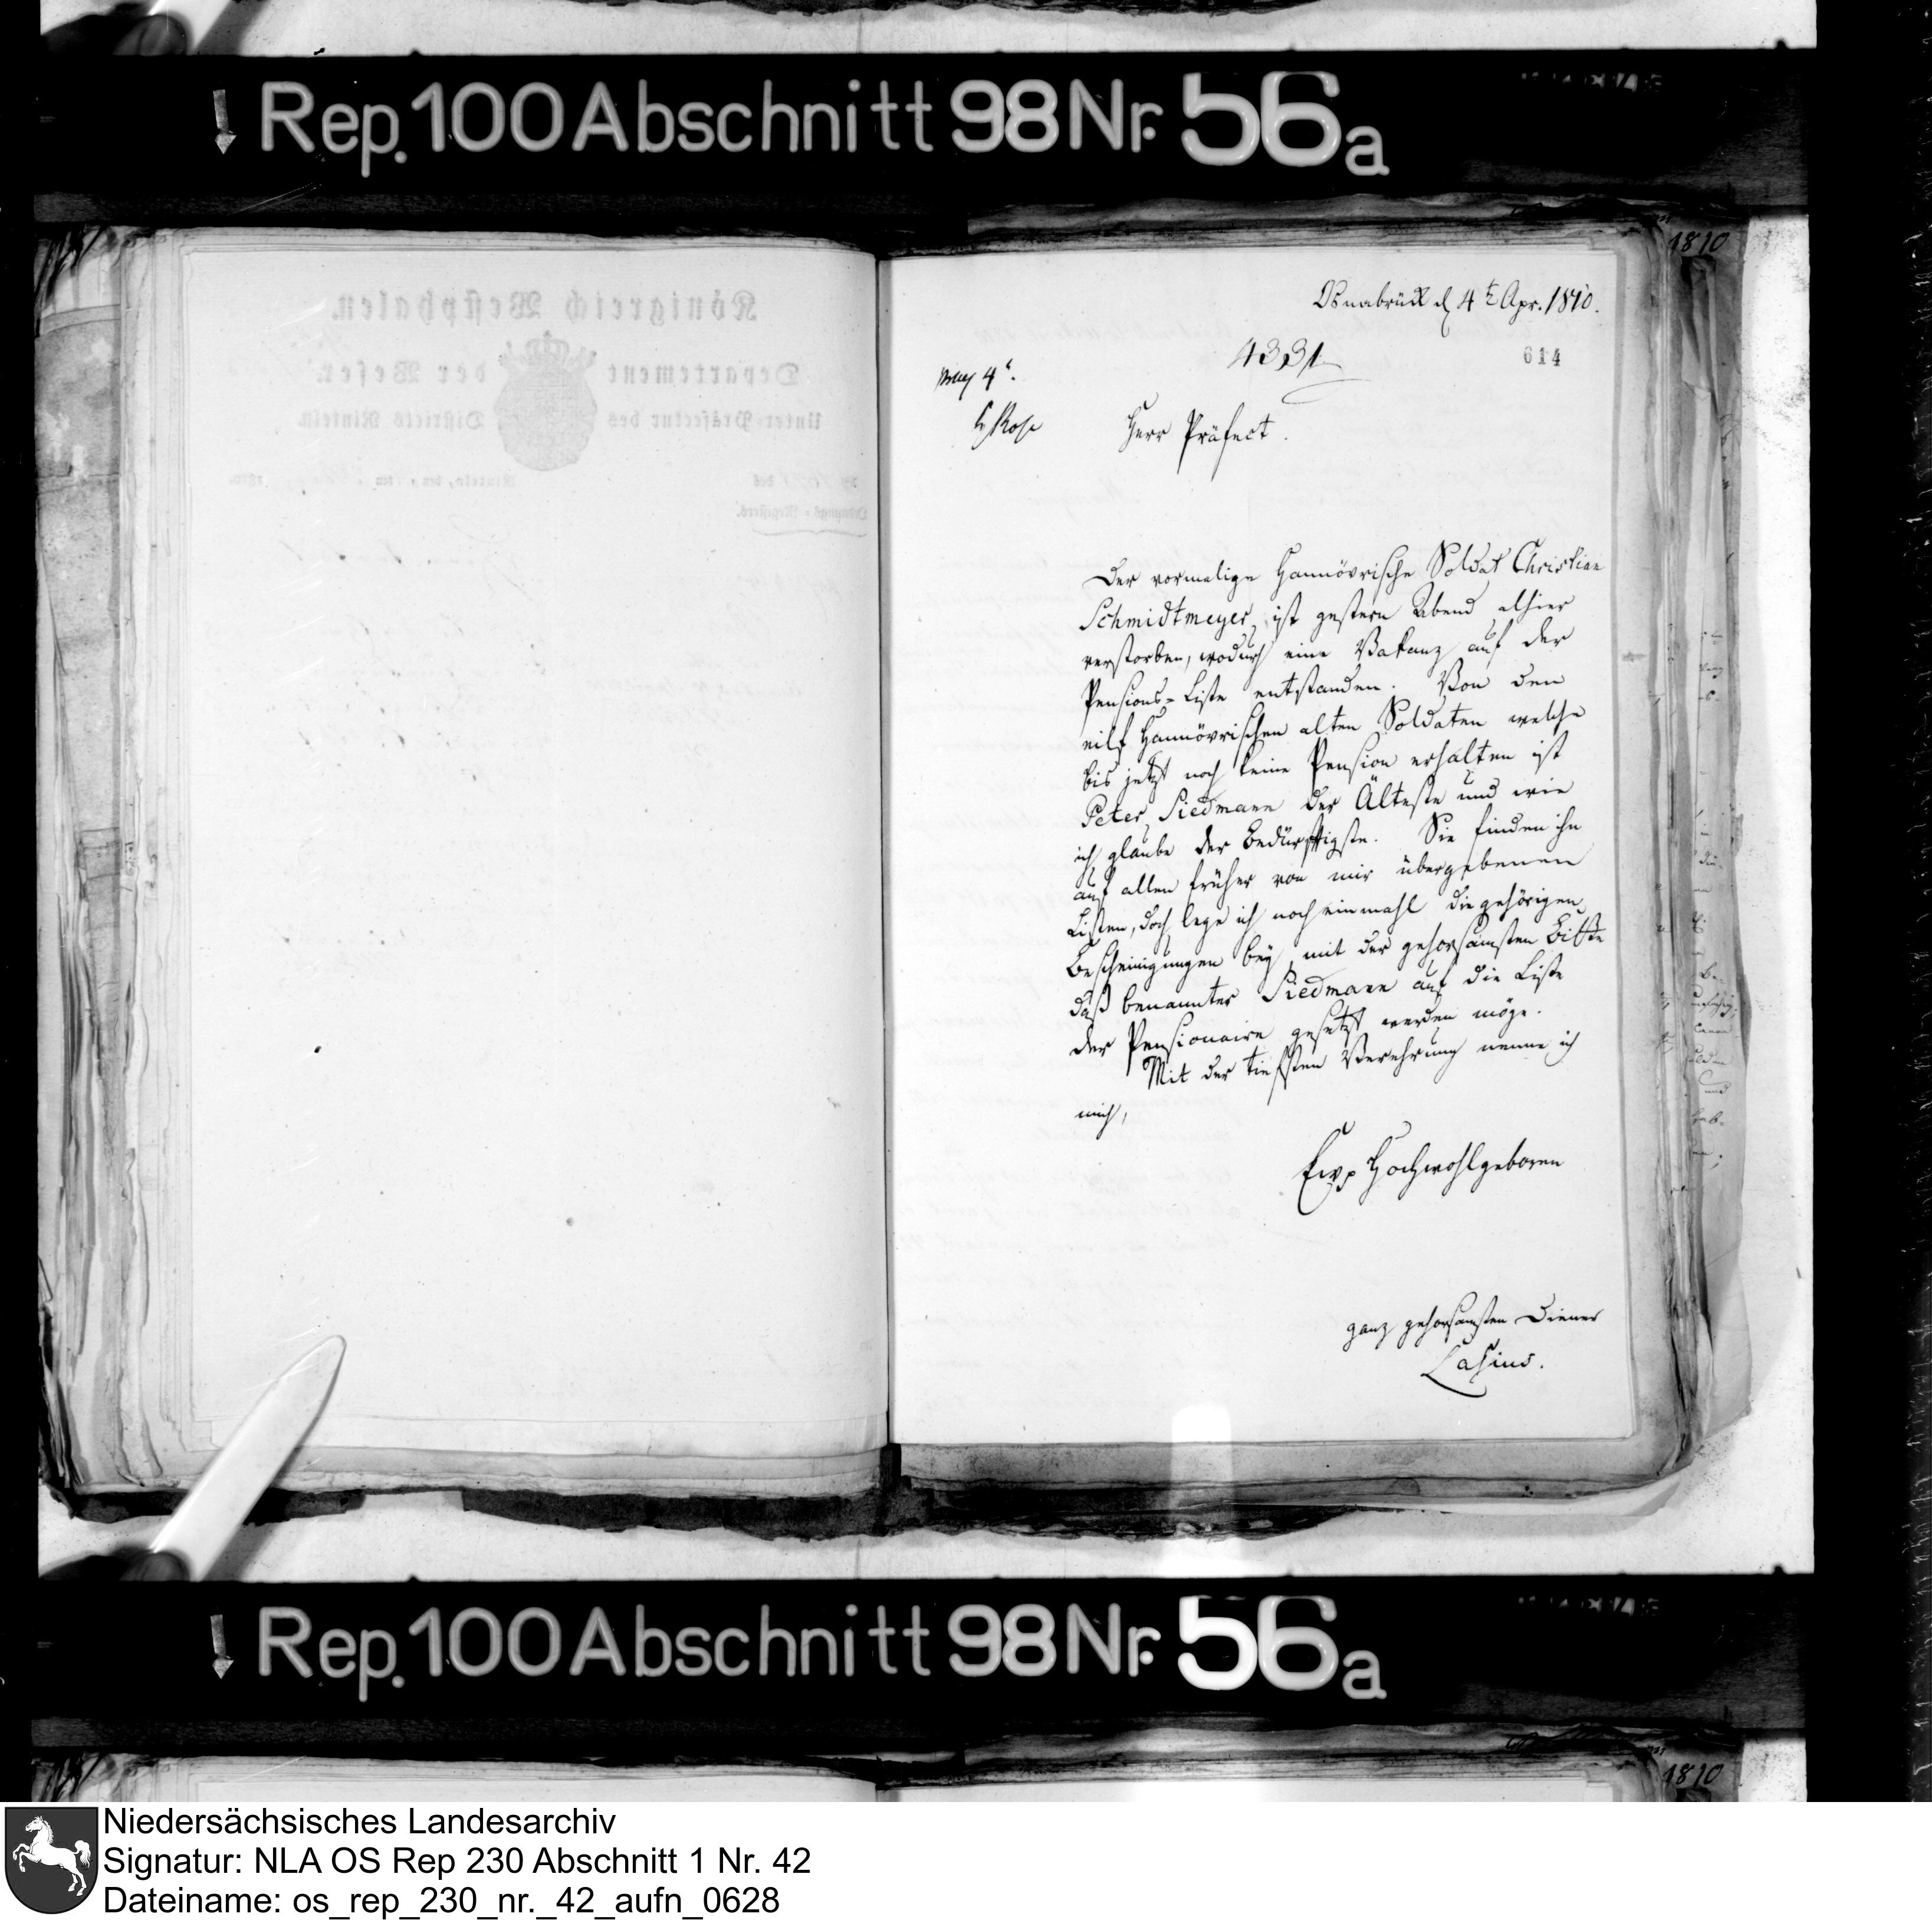 Rep. 100 Abschnitt 98 Nr. 56a
1810
Osnabrück d 4t Apr. 1810.
4331
614
4t.
Rose
Herr Präfect.
Der vormalige Hannövrische Soldat Christian
Schmidtmeyer, ist gestern Abend alhier
verstorben, wodurch eine Vakanz auf der
Pensions-Liste entstanden. Von den
eilf Hannövrischen alten Soldaten welche
bis jetzt noch keine Pension erhalten ist
Peter Siedmann der Älteste und wie
ich glaube der Bedürftigste. Sie finden ihn
auf allen früher von mir übergebenen
Listen, doch lege ich noch einmahl die gehörigen
Bescheinigungen bey, mit der gehorsamsten Bitte
daß benannter Siedmann auf die Liste
der Pensionaire gesetzt werden möge.
Mit der tiefsten Verehrung nenne ich
mich,
Ew. Hochwohlgeboren
ganz gehorsamsten Diener
Lasius.
Königreich Westphalen.
Departement der Weser.
Unter-Präfectur des Districts Rinteln.
Rinteln, den ten 1810.
Rep. 100 Abschnitt 98 Nr. 56a
1810
Niedersächsisches Landesarchiv
Signatur: NLA OS Rep 230 Abschnitt 1 Nr. 42
Dateiname: os_rep_230_nr._42_aufn_0628